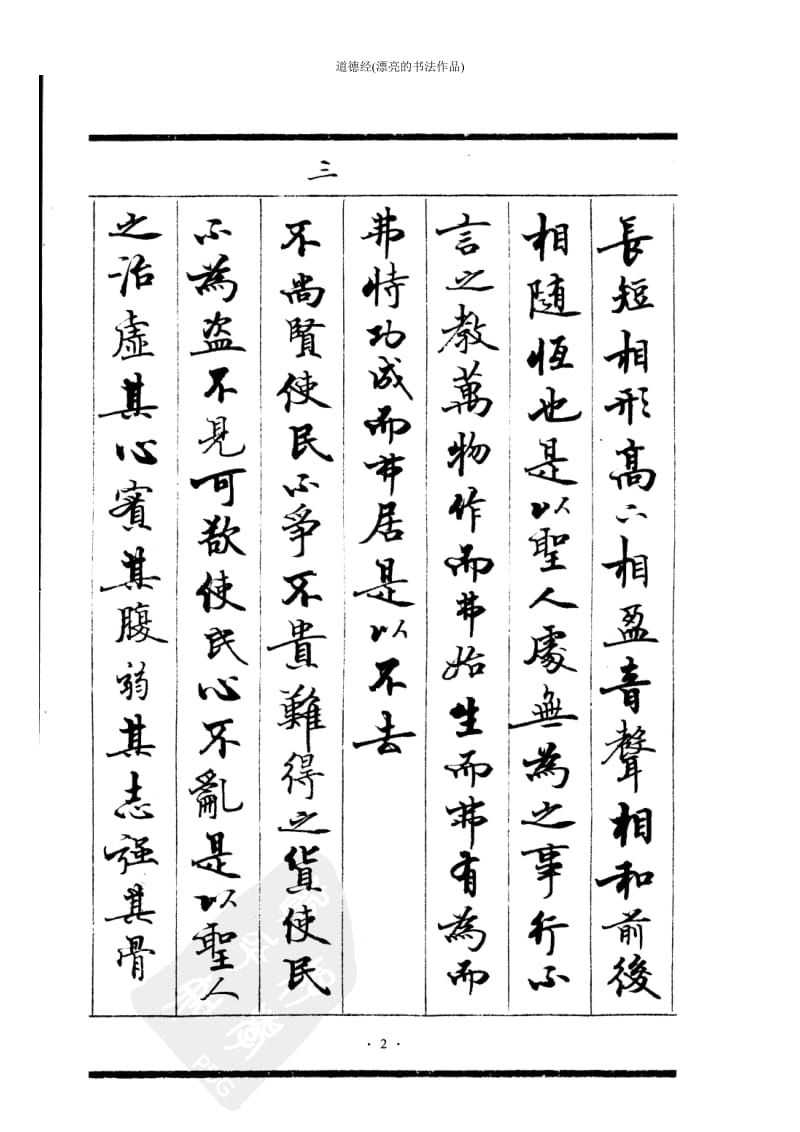 道德经(漂亮的书法作品)
三
長短相形高下相盈音聲相和前後
相隨恆也是以聖人處無為之事行不
言之教萬物作而弗始生而弗有為而
弗恃功成而弗居是以不去
不尚賢使民不爭不貴難得之貨使民
不為盜不見可欲使民心不亂是以聖人
之治虛其心實其腹弱其志强其骨
· 2 ·